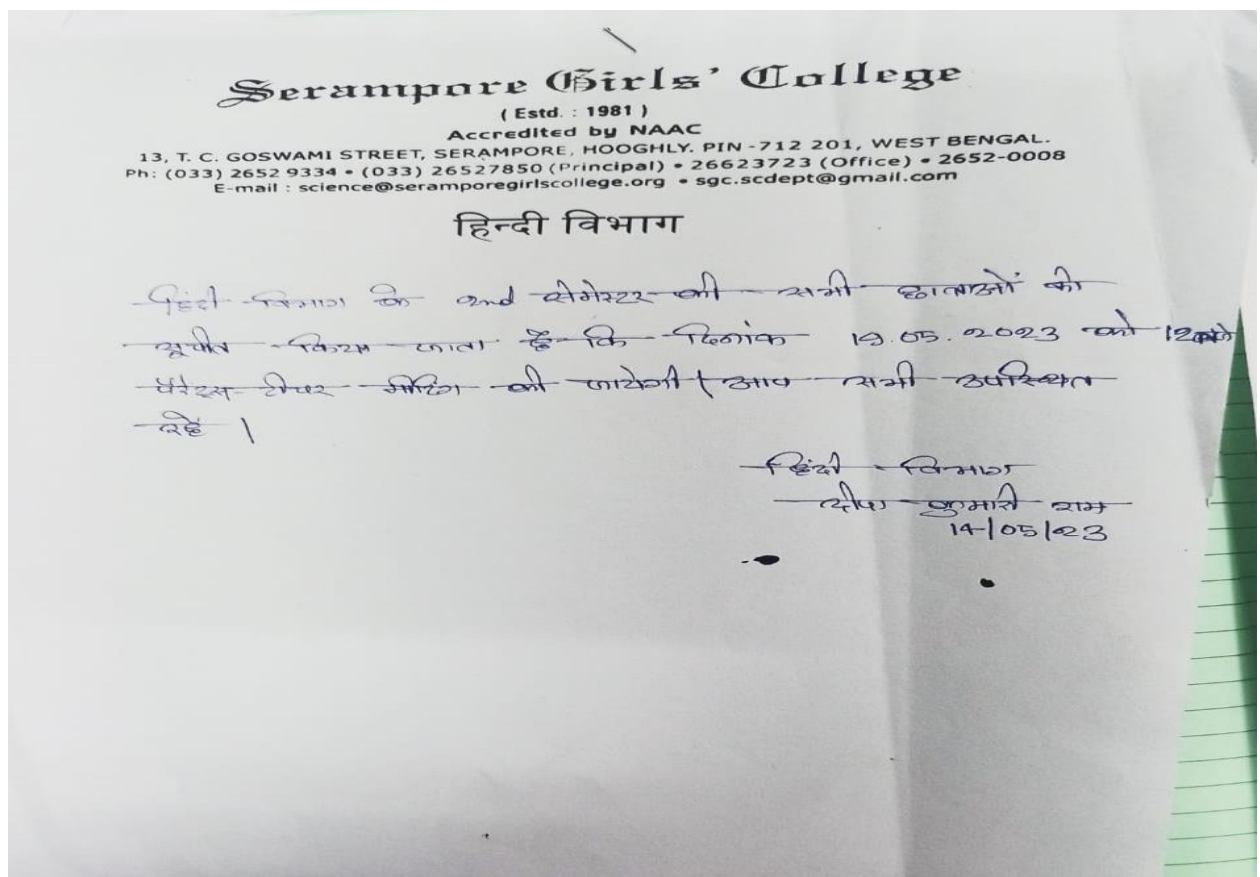 Serampore Girls' College
( Estd. : 1981 )
Accredited by NAAC
13, T. C. GOSWAMI STREET, SERAMPORE, HOOGHLY. PIN -712 201, WEST BENGAL.
Ph: (033) 2652 9334 • (033) 26527850 (Principal) • 26623723 (Office) • 2652-0008
E-mail : science@seramporegirlscollege.org • sgc.scdept@gmail.com
हिन्दी विभाग
हिंदी विभाग के 2nd सेमेस्टर की सभी छात्राओं को
सूचीत किया जाता है कि दिनांक 19.05.2023 को 12बजे
पैरेंट्स टीचर मीटिंग की जायेगी। आप सभी उपस्थित
रहें।
हिंदी विभाग
दीपा कुमारी राम
14/05/23